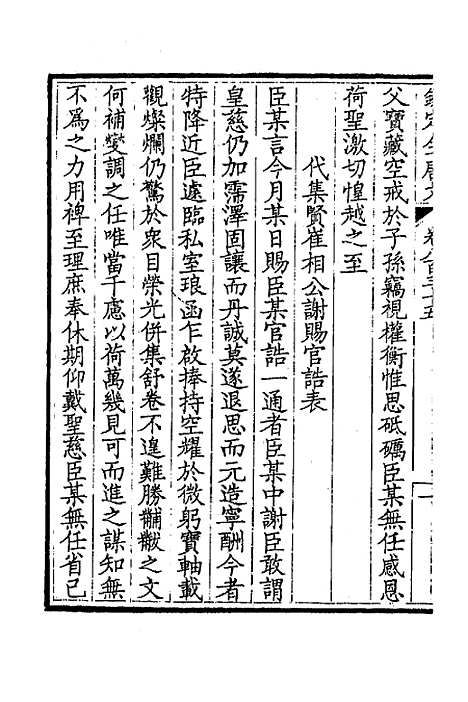 欽定全唐文 卷八百三十五
父寶藏空戒於子孫竊視權衡惟思砥礪臣某無任感恩
荷聖激切惶越之至
代集賢崔相公謝賜官誥表
臣某言今月某日賜臣某官誥一通者臣某中謝臣敢謂
皇慈仍加濡澤固讓而丹誠莫遂退思而元造寧酬今者
特降近臣遽臨私室琅函乍啟捧持空耀於微躬寶軸載
觀燦爛仍驚於眾目榮光併集舒卷不遑難勝黼黻之文
何補燮調之任唯當千慮以荷萬幾見可而進之謀知無
不為之力用裨至理庶奉休期仰戴聖慈臣某無任省己